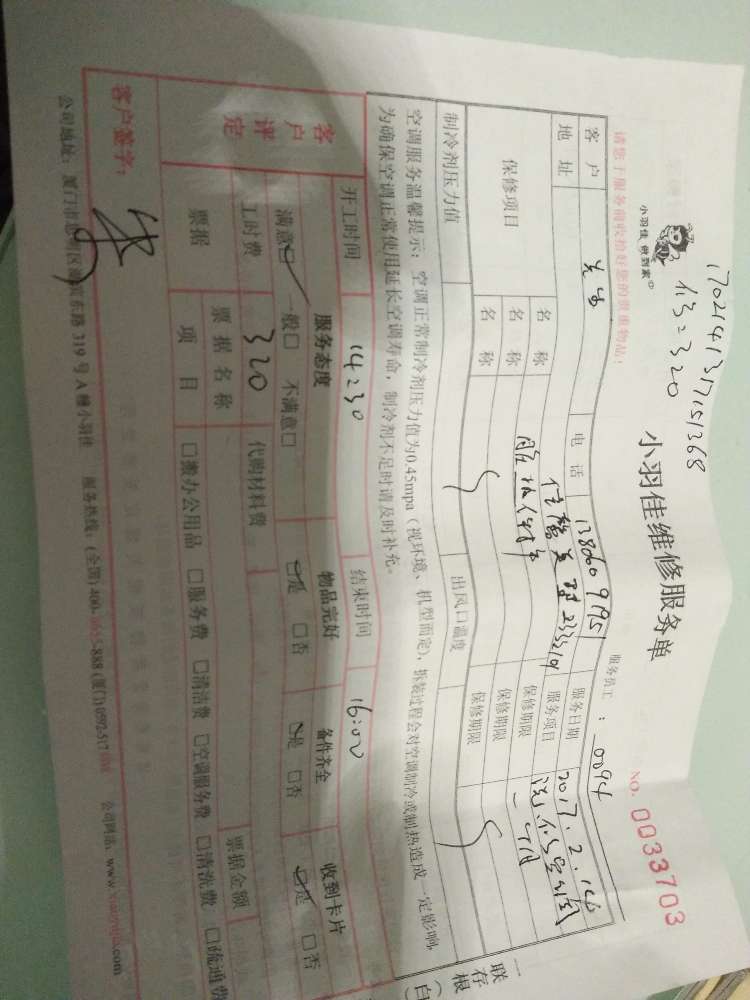 1702141317151368
修=320
小羽佳 做到家
小羽佳维修服务单
请您于服务前收拾好您的贵重物品！
服务员工：0094
NO. 0033703
客户 先生 电话 服务日期 2017.2.
地址 服务项目
保修项目 名称 保修期限 一个月
名称 保修期限
名称 保修期限
制冷剂压力值 出风口温度
空调服务温馨提示：空调正常制冷剂压力值为0.45mpa（视环境、机型而定），拆装过程会对空调制冷或制热造成一定影响，
为确保空调正常使用延长空调寿命，制冷剂不足时请及时补充。
开工时间 14:30 结束时间 16:00
客户评定 服务态度 物品完好 备件齐全 收到卡片
满意☑ 一般□ 不满意□ ☑是 □否 ☑是 □否 ☑是 □否
工时费 320 代购材料费 票据金额
票据 票据名称
项目 □搬办公用品 □服务费 □清洁费 □空调服务费 □清洗费 □疏通费
客户签字：
公司地址：厦门市思明区 东路319号A幢小羽佳 服务热线：(全国)400- -888 (厦门)0592-517 公司网站：www.xiaoyujia.com
一联存根（白